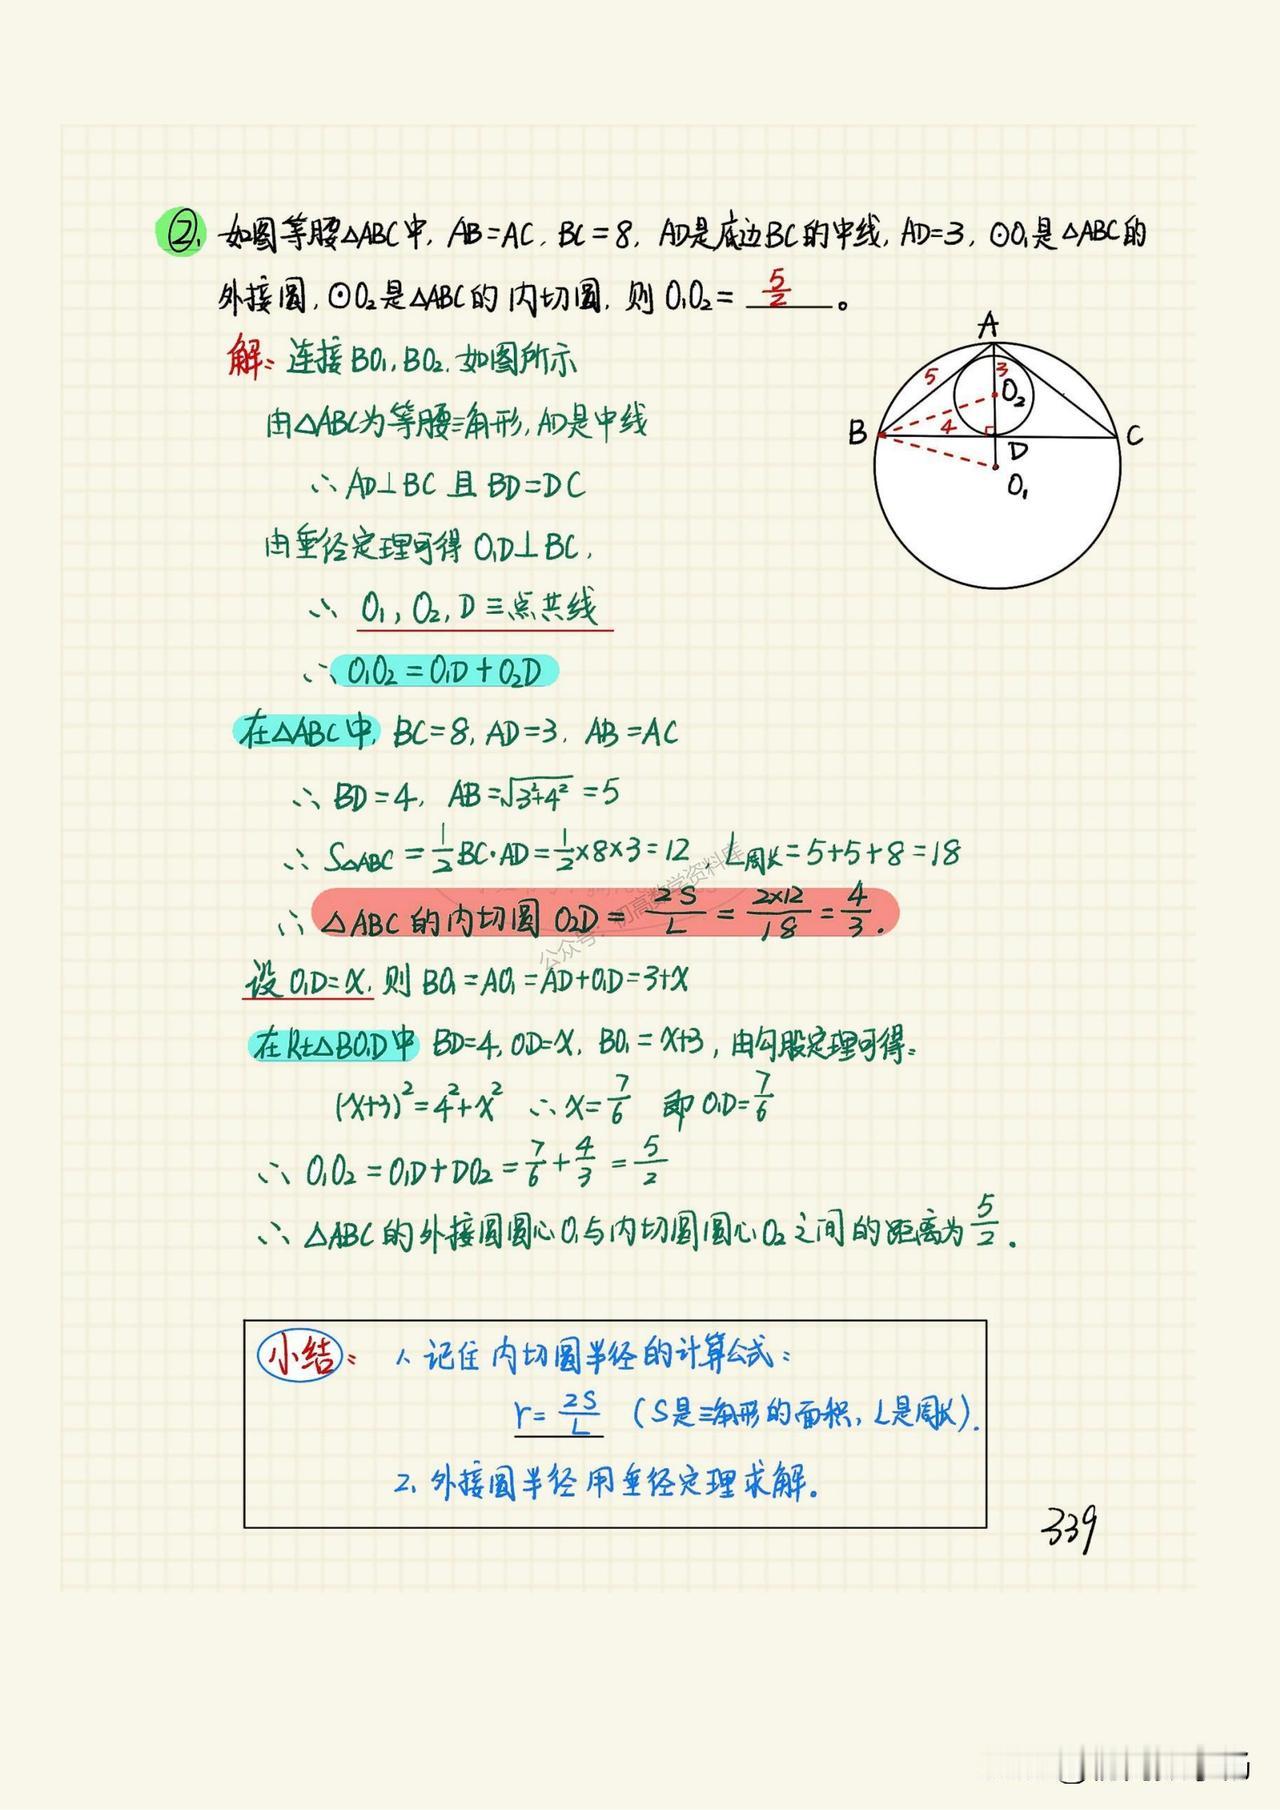 ②. 如图等腰△ABC中, AB=AC, BC=8, AD是底边BC的中线, AD=3, ⊙O₁是△ABC的
外接圆, ⊙O₂是△ABC的内切圆, 则O₁O₂= 5/2 。
A
B
C
D
O₂
O₁
5
3
4
解: 连接BO₁, BO₂, 如图所示
由△ABC为等腰三角形, AD是中线
∴ AD⊥BC 且 BD=DC
由垂径定理可得 O₁D⊥BC,
∴ O₁, O₂, D 三点共线
∴ O₁O₂=O₁D+O₂D
在△ABC中, BC=8, AD=3, AB=AC
∴ BD=4, AB=√3²+4² =5
∴ S△ABC = 1/2 BC·AD = 1/2×8×3=12, L周长=5+5+8=18
∴ △ABC的内切圆 O₂D = 2S/L = 2×12/18 = 4/3.
设O₁D=x, 则 BO₁=AO₁=AD+O₁D=3+x
在Rt△BO₁D中 BD=4, OD=x, BO₁=x+3, 由勾股定理可得:
(x+3)²=4²+x² ∴ x=7/6 即 O₁D=7/6
∴ O₁O₂=O₁D+DO₂=7/6+4/3=5/2
∴ △ABC的外接圆圆心O₁与内切圆圆心O₂之间的距离为5/2.
小结: 1、记住内切圆半径的计算公式:
r=2S/L (S是三角形的面积, L是周长).
2、外接圆半径用垂径定理求解。
339
公众号: 初高数学资料库